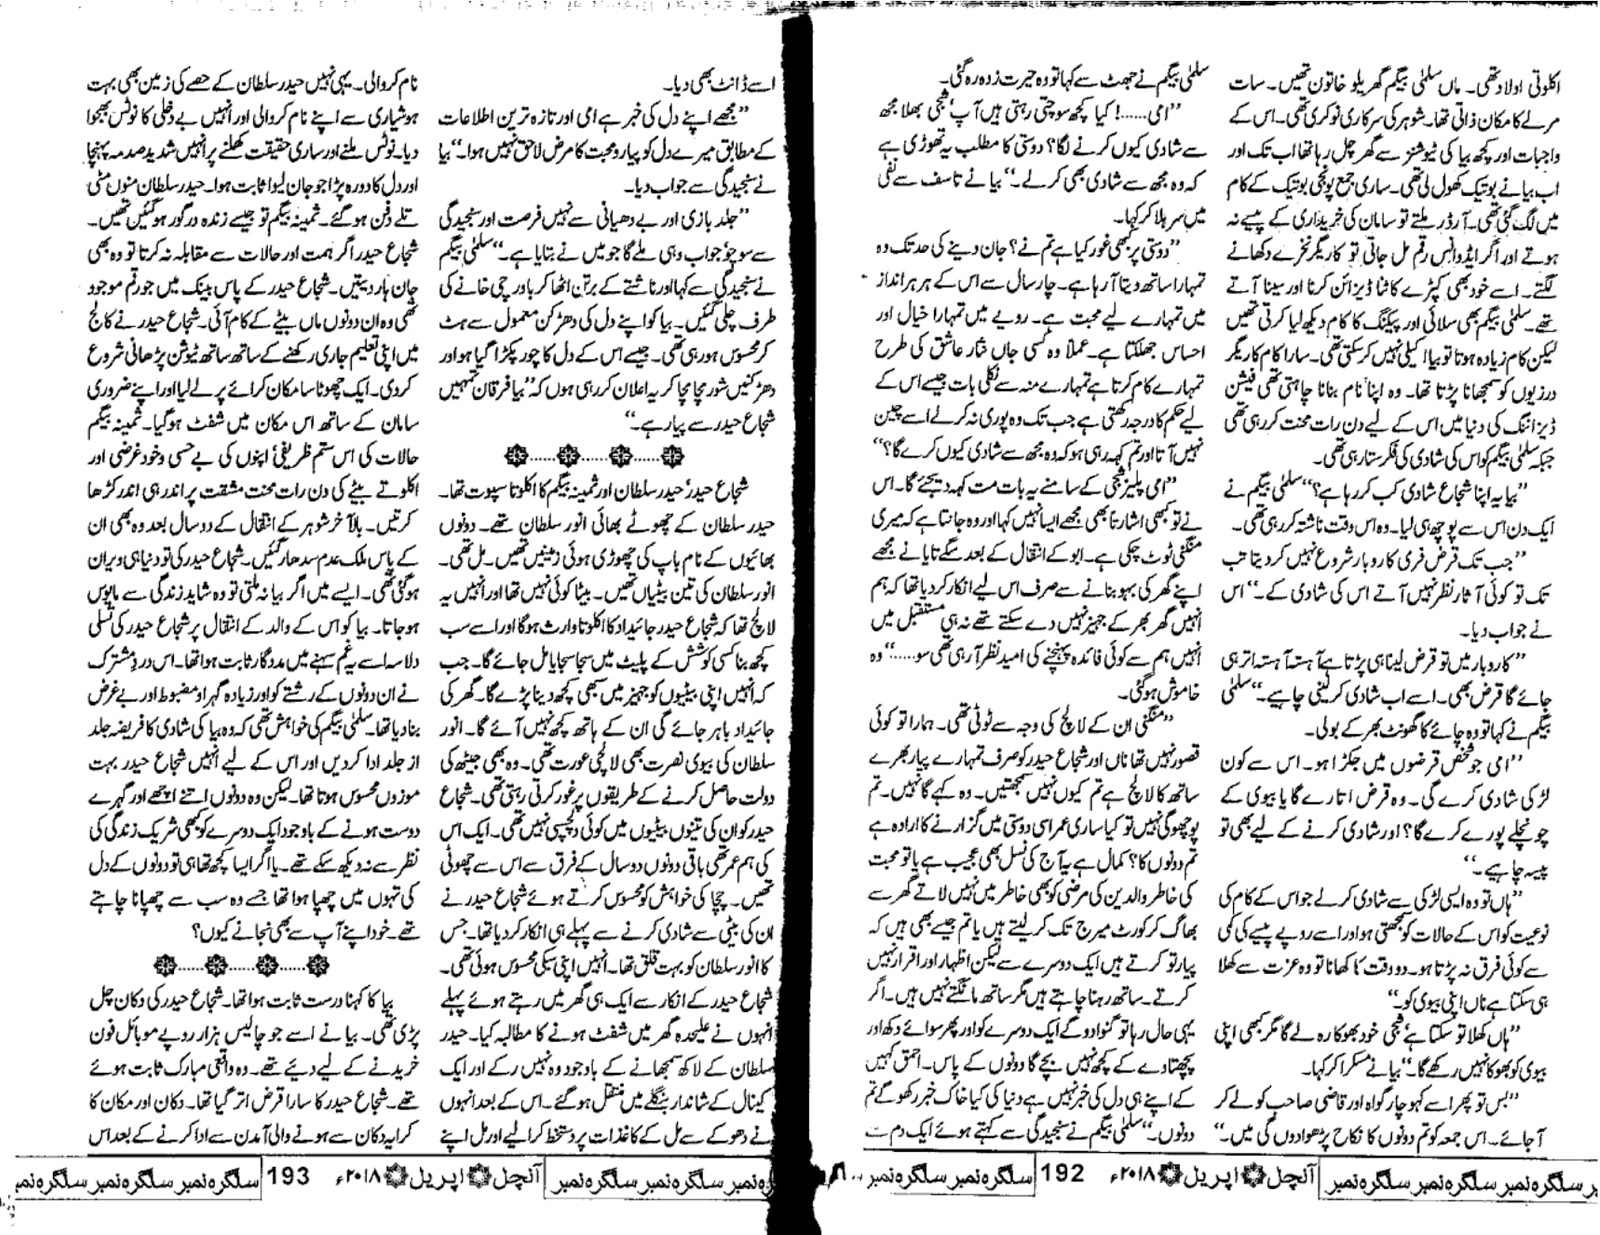 اکلوتی اولاد تھی۔ ماں سلمیٰ بیگم گھریلو خاتون تھیں۔ سات
مرلے کا مکان ذاتی تھا۔ شوہر کی سرکاری نوکری تھی۔ اس کے
واجبات اور کچھ بیا کی ٹیوشنز سے گھر چل رہا تھا اب تک اور
اب بیا نے بوتیک کھول لی تھی۔ ساری جمع پونجی بوتیک کے کام
میں لگ گئی تھی۔ آرڈر ملتے تو سامان کی خریداری کے پیسے نہ
ہوتے اور اگر ایڈوانس رقم مل جاتی تو کاریگر نخرے دکھانے
لگتے۔ اسے خود بھی کپڑے کاٹنا ڈیزائن کرنا اور سینا آتے
تھے۔ سلمیٰ بیگم بھی سلائی اور پیکنگ کا کام دیکھ لیا کرتی تھیں
لیکن کام زیادہ ہوتا تو بیا اکیلی نہیں کرسکتی تھی۔ سارا کام کاریگر
درزیوں کو سمجھانا پڑتا تھا۔ وہ اپنا نام بنانا چاہتی تھی فیشن
ڈیزائننگ کی دنیا میں اس کے لیے دن رات محنت کررہی تھی
جبکہ سلمیٰ بیگم کو اس کی شادی کی فکر ستا رہی تھی۔
”بیا یہ اپنا شجاع شادی کب کررہا ہے؟“ سلمیٰ بیگم نے
ایک دن اس سے پوچھ ہی لیا۔ وہ اس وقت ناشتہ کررہی تھی۔
”جب تک قرض فری کاروبار شروع نہیں کردیتا تب
تک تو کوئی آثار نظر نہیں آتے اس کی شادی کے۔“ اس
نے جواب دیا۔
”کاروبار میں تو قرض لینا ہی پڑتا ہے آہستہ آہستہ اتر ہی
جائے گا قرض بھی۔ اسے اب شادی کرلینی چاہیے۔“ سلمیٰ
بیگم نے کہا تو وہ چائے کا گھونٹ بھر کے بولی۔
”امی جو شخص قرضوں میں جکڑا ہو۔ اس سے کون
لڑکی شادی کرے گی۔ وہ قرض اتارے گا یا بیوی کے
چونچلے پورے کرے گا؟ اور شادی کرنے کے لیے بھی تو
پیسہ چاہیے۔“
”ہاں تو وہ ایسی لڑکی سے شادی کرلے جو اس کے کام کی
نوعیت کو اس کے حالات کو سمجھتی ہو اور اسے روپے پیسے کی کمی
سے کوئی فرق نہ پڑتا ہو۔ دو وقت کا کھانا تو وہ عزت سے کھلا
ہی سکتا ہے ناں اپنی بیوی کو۔“
”ہاں کھلا تو سکتا ہے‘ شجی خود بھوکا رہ لے گا مگر کبھی اپنی
بیوی کو بھوکا نہیں رکھے گا۔“ بیا نے مسکرا کر کہا۔
”بس تو پھر اسے کہو چار گواہ اور قاضی صاحب کو لے کر
آجائے۔ اس جمعہ کو تم دونوں کا نکاح پڑھوا دوں گی میں۔“
سلمیٰ بیگم نے جھٹ سے کہا تو وہ حیرت زدہ رہ گئی۔
”امی.....! کیا کچھ سوچتی رہتی ہیں آپ‘ شجی بھلا مجھ
سے شادی کیوں کرنے لگا؟ دوستی کا مطلب یہ تھوڑی ہے
کہ وہ مجھ سے شادی بھی کرلے۔“ بیا نے تاسف سے نفی
میں سر ہلا کر کہا۔
”دوستی پر بھی غور کیا ہے تم نے؟ جان دینے کی حد تک وہ
تمہارا ساتھ دیتا آرہا ہے۔ چار سال سے اس کے ہر ہر انداز
میں تمہارے لیے محبت ہے۔ رویے میں تمہارا خیال اور
احساس جھلکتا ہے۔ عملاً وہ کسی جاں نثار عاشق کی طرح
تمہارے کام کرتا ہے تمہارے منہ سے نکلی بات جیسے اس کے
لیے حکم کا درجہ رکھتی ہے جب تک وہ پوری نہ کرلے اسے چین
نہیں آتا اور تم کہہ رہی ہو کہ وہ مجھ سے شادی کیوں کرے گا؟“
”امی پلیز شجی کے سامنے یہ بات مت کہہ دیجئے گا۔ اس
نے تو کبھی اشارتاً بھی مجھے ایسا نہیں کہا اور وہ جانتا ہے کہ میری
منگنی ٹوٹ چکی ہے۔ ابو کے انتقال کے بعد سگے تایا نے مجھے
اپنے گھر کی بہو بنانے سے صرف اس لیے انکار کردیا تھا کہ ہم
انہیں گھر بھر کے جہیز نہیں دے سکتے تھے نہ ہی مستقبل میں
انہیں ہم سے کوئی فائدہ پہنچنے کی امید نظر آرہی تھی سو.....“ وہ
خاموش ہوگئی۔
”منگنی ان کے لالچ کی وجہ سے ٹوٹی تھی۔ ہمارا تو کوئی
قصور نہیں تھا ناں اور شجاع حیدر کو صرف تمہارے پیار بھرے
ساتھ کا لالچ ہے تم کیوں نہیں سمجھتیں۔ وہ کہے گا نہیں۔ تم
پوچھو گی نہیں تو کیا ساری عمر اسی دوستی میں گزارنے کا ارادہ ہے
تم دونوں کا؟ کمال ہے یہ آج کی نسل بھی عجیب ہے یا تو محبت
کی خاطر والدین کی مرضی کو بھی خاطر میں نہیں لاتے گھر سے
بھاگ کر کورٹ میرج تک کرلیتے ہیں یا تم جیسے بھی ہیں کہ
پیار تو کرتے ہیں ایک دوسرے سے لیکن اظہار اور اقرار نہیں
کرتے۔ ساتھ رہنا چاہتے ہیں مگر ساتھ مانگتے نہیں ہیں۔ اگر
یہی حال رہا تو گنوا دو گے ایک دوسرے کو اور پھر سوائے دکھ اور
پچھتاوے کے کچھ نہیں بچے گا دونوں کے پاس۔ احمق کہیں
کے اپنے ہی دل کی خبر نہیں ہے دنیا کی کیا خاک خبر رکھو گے تم
دونوں۔“ سلمیٰ بیگم نے سنجیدگی سے کہتے ہوئے ایک دم سے
سلگرہ نمبر سلگرہ نمبر سلگرہ نمبر آنچل اپریل ۲۰۱۸ء 192 سلگرہ نمبر سلگرہ نمبر سلگرہ نمبر
اسے ڈانٹ بھی دیا۔
”مجھے اپنے دل کی خبر ہے امی اور تازہ ترین اطلاعات
کے مطابق میرے دل کو پیار و محبت کا مرض لاحق نہیں ہوا۔“ بیا
نے سنجیدگی سے جواب دیا۔
”جلد بازی اور بے دھیانی سے نہیں فرصت اور سنجیدگی
سے سوچو‘ جواب وہی ملے گا جو میں نے بتایا ہے۔“ سلمیٰ بیگم
نے سنجیدگی سے کہا اور ناشتے کے برتن اٹھا کر باورچی خانے کی
طرف چلی گئیں۔ بیا کو اپنے دل کی دھڑکن معمول سے ہٹ
کر محسوس ہورہی تھی۔ جیسے اس کے دل کا چور پکڑا گیا ہو اور
دھڑکنیں شور مچا مچا کر یہ اعلان کررہی ہوں کہ ”بیا فرقان تمہیں
شجاع حیدر سے پیار ہے۔“
شجاع حیدر‘ حیدر سلطان اور ثمینہ بیگم کا اکلوتا سپوت تھا۔
حیدر سلطان کے چھوٹے بھائی انور سلطان تھے۔ دونوں
بھائیوں کے نام باپ کی چھوڑی ہوئی زمینیں تھیں۔ مل تھی۔
انور سلطان کی تین بیٹیاں تھیں۔ بیٹا کوئی نہیں تھا اور انہیں یہ
لالچ تھا کہ شجاع حیدر جائیداد کا اکلوتا وارث ہوگا اور اسے سب
کچھ بنا کسی کوشش کے پلیٹ میں سجا سجایا مل جائے گا۔ جب
کہ انہیں اپنی بیٹیوں کو جہیز میں سبھی کچھ دینا پڑے گا۔ گھر کی
جائیداد باہر جائے گی ان کے ہاتھ کچھ نہیں آئے گا۔ انور
سلطان کی بیوی نصرت بھی لالچی عورت تھی۔ وہ بھی جیٹھ کی
دولت حاصل کرنے کے طریقوں پر غور کرتی رہتی تھی۔ شجاع
حیدر کو ان کی تینوں بیٹیوں میں کوئی دلچسپی نہیں تھی۔ ایک اس
کی ہم عمر تھی باقی دونوں دو سال کے فرق سے اس سے چھوٹی
تھیں۔ چچا کی خواہش کو محسوس کرتے ہوئے شجاع حیدر نے
ان کی بیٹی سے شادی کرنے سے پہلے ہی انکار کردیا تھا۔ جس
کا انور سلطان کو بہت قلق تھا۔ انہیں اپنی سبکی محسوس ہوئی تھی۔
شجاع حیدر کے انکار سے ایک ہی گھر میں رہتے ہوئے پہلے
انہوں نے علیحدہ گھر میں شفٹ ہونے کا مطالبہ کیا۔ حیدر
سلطان کے لاکھ سمجھانے کے باوجود وہ نہیں رکے اور ایک
کینال کے شاندار بنگلے میں منتقل ہوگئے۔ اس کے بعد انہوں
نے دھوکے سے مل کے کاغذات پر دستخط کرالیے اور مل اپنے
نام کروالی۔ یہی نہیں حیدر سلطان کے حصے کی زمین بھی بہت
ہوشیاری سے اپنے نام کروالی اور انہیں بے دخلی کا نوٹس بھجوا
دیا۔ نوٹس ملنے اور ساری حقیقت کھلنے پر انہیں شدید صدمہ پہنچا
اور دل کا دورہ پڑا جو جان لیوا ثابت ہوا۔ حیدر سلطان منوں مٹی
تلے دفن ہوگئے۔ ثمینہ بیگم تو جیسے زندہ درگور ہوگئیں تھیں۔
شجاع حیدر اگر ہمت اور حالات سے مقابلہ نہ کرتا تو وہ بھی
جان ہار دیتیں۔ شجاع حیدر کے پاس بینک میں جو رقم موجود
تھی وہ ان دونوں ماں بیٹے کے کام آئی۔ شجاع حیدر نے کالج
میں اپنی تعلیم جاری رکھنے کے ساتھ ساتھ ٹیوشن پڑھانی شروع
کردی۔ ایک چھوٹا سا مکان کرائے پر لے لیا اور اپنے ضروری
سامان کے ساتھ اس مکان میں شفٹ ہوگیا۔ ثمینہ بیگم
حالات کی اس ستم ظریفی‘ اپنوں کی بے حسی و خود غرضی اور
اکلوتے بیٹے کی دن رات محنت مشقت پر اندر ہی اندر کڑھا
کرتیں۔ بالآخر شوہر کے انتقال کے دو سال بعد وہ بھی ان
کے پاس ملک عدم سدھار گئیں۔ شجاع حیدر کی تو دنیا ہی ویران
ہوگئی تھی۔ ایسے میں اگر بیا نہ ملتی تو وہ شاید زندگی سے مایوس
ہوجاتا۔ بیا کو اس کے والد کے انتقال پر شجاع حیدر کی تسلی
دلاسہ اسے یہ غم سہنے میں مددگار ثابت ہوا تھا۔ اس درد مشترک
نے ان دونوں کے رشتے کو اور زیادہ گہرا و مضبوط اور بے غرض
بنا دیا تھا۔ سلمیٰ بیگم کی خواہش تھی کہ وہ بیا کی شادی کا فریضہ جلد
از جلد ادا کردیں اور اس کے لیے انہیں شجاع حیدر بہت
موزوں محسوس ہوتا تھا۔ لیکن وہ دونوں اتنے اچھے اور گہرے
دوست ہونے کے باوجود ایک دوسرے کو کبھی شریک زندگی کی
نظر سے نہ دیکھ سکے تھے۔ یا اگر ایسا کچھ تھا ہی تو دونوں کے دل
کی تہوں میں چھپا ہوا تھا جسے وہ سب سے چھپانا چاہتے
تھے۔ خود اپنے آپ سے بھی نجانے کیوں؟
بیا کا کہنا درست ثابت ہوا تھا۔ شجاع حیدر کی دکان چل
پڑی تھی۔ بیا نے اسے جو چالیس ہزار روپے موبائل فون
خریدنے کے لیے دیئے تھے۔ وہ واقعی مبارک ثابت ہوئے
تھے۔ شجاع حیدر کا سارا قرض اتر گیا تھا۔ دکان اور مکان کا
کرایہ دکان سے ہونے والی آمدن سے ادا کرنے کے بعد اس
سلگرہ نمبر سلگرہ نمبر سلگرہ نمبر آنچل اپریل ۲۰۱۸ء 193 سلگرہ نمبر سلگرہ نمبر سلگرہ نمبر